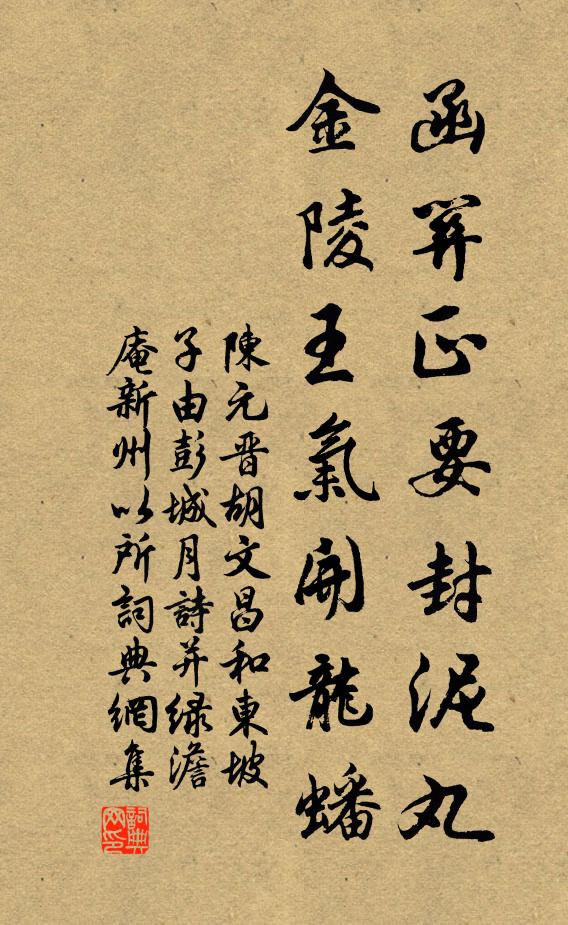 函關正要封泥丸
金陵王氣開龍蟠
陳元晋胡文昌和東坡
子由彭城月詩并緑澹
庵新州以所詞典網集
詞典网印